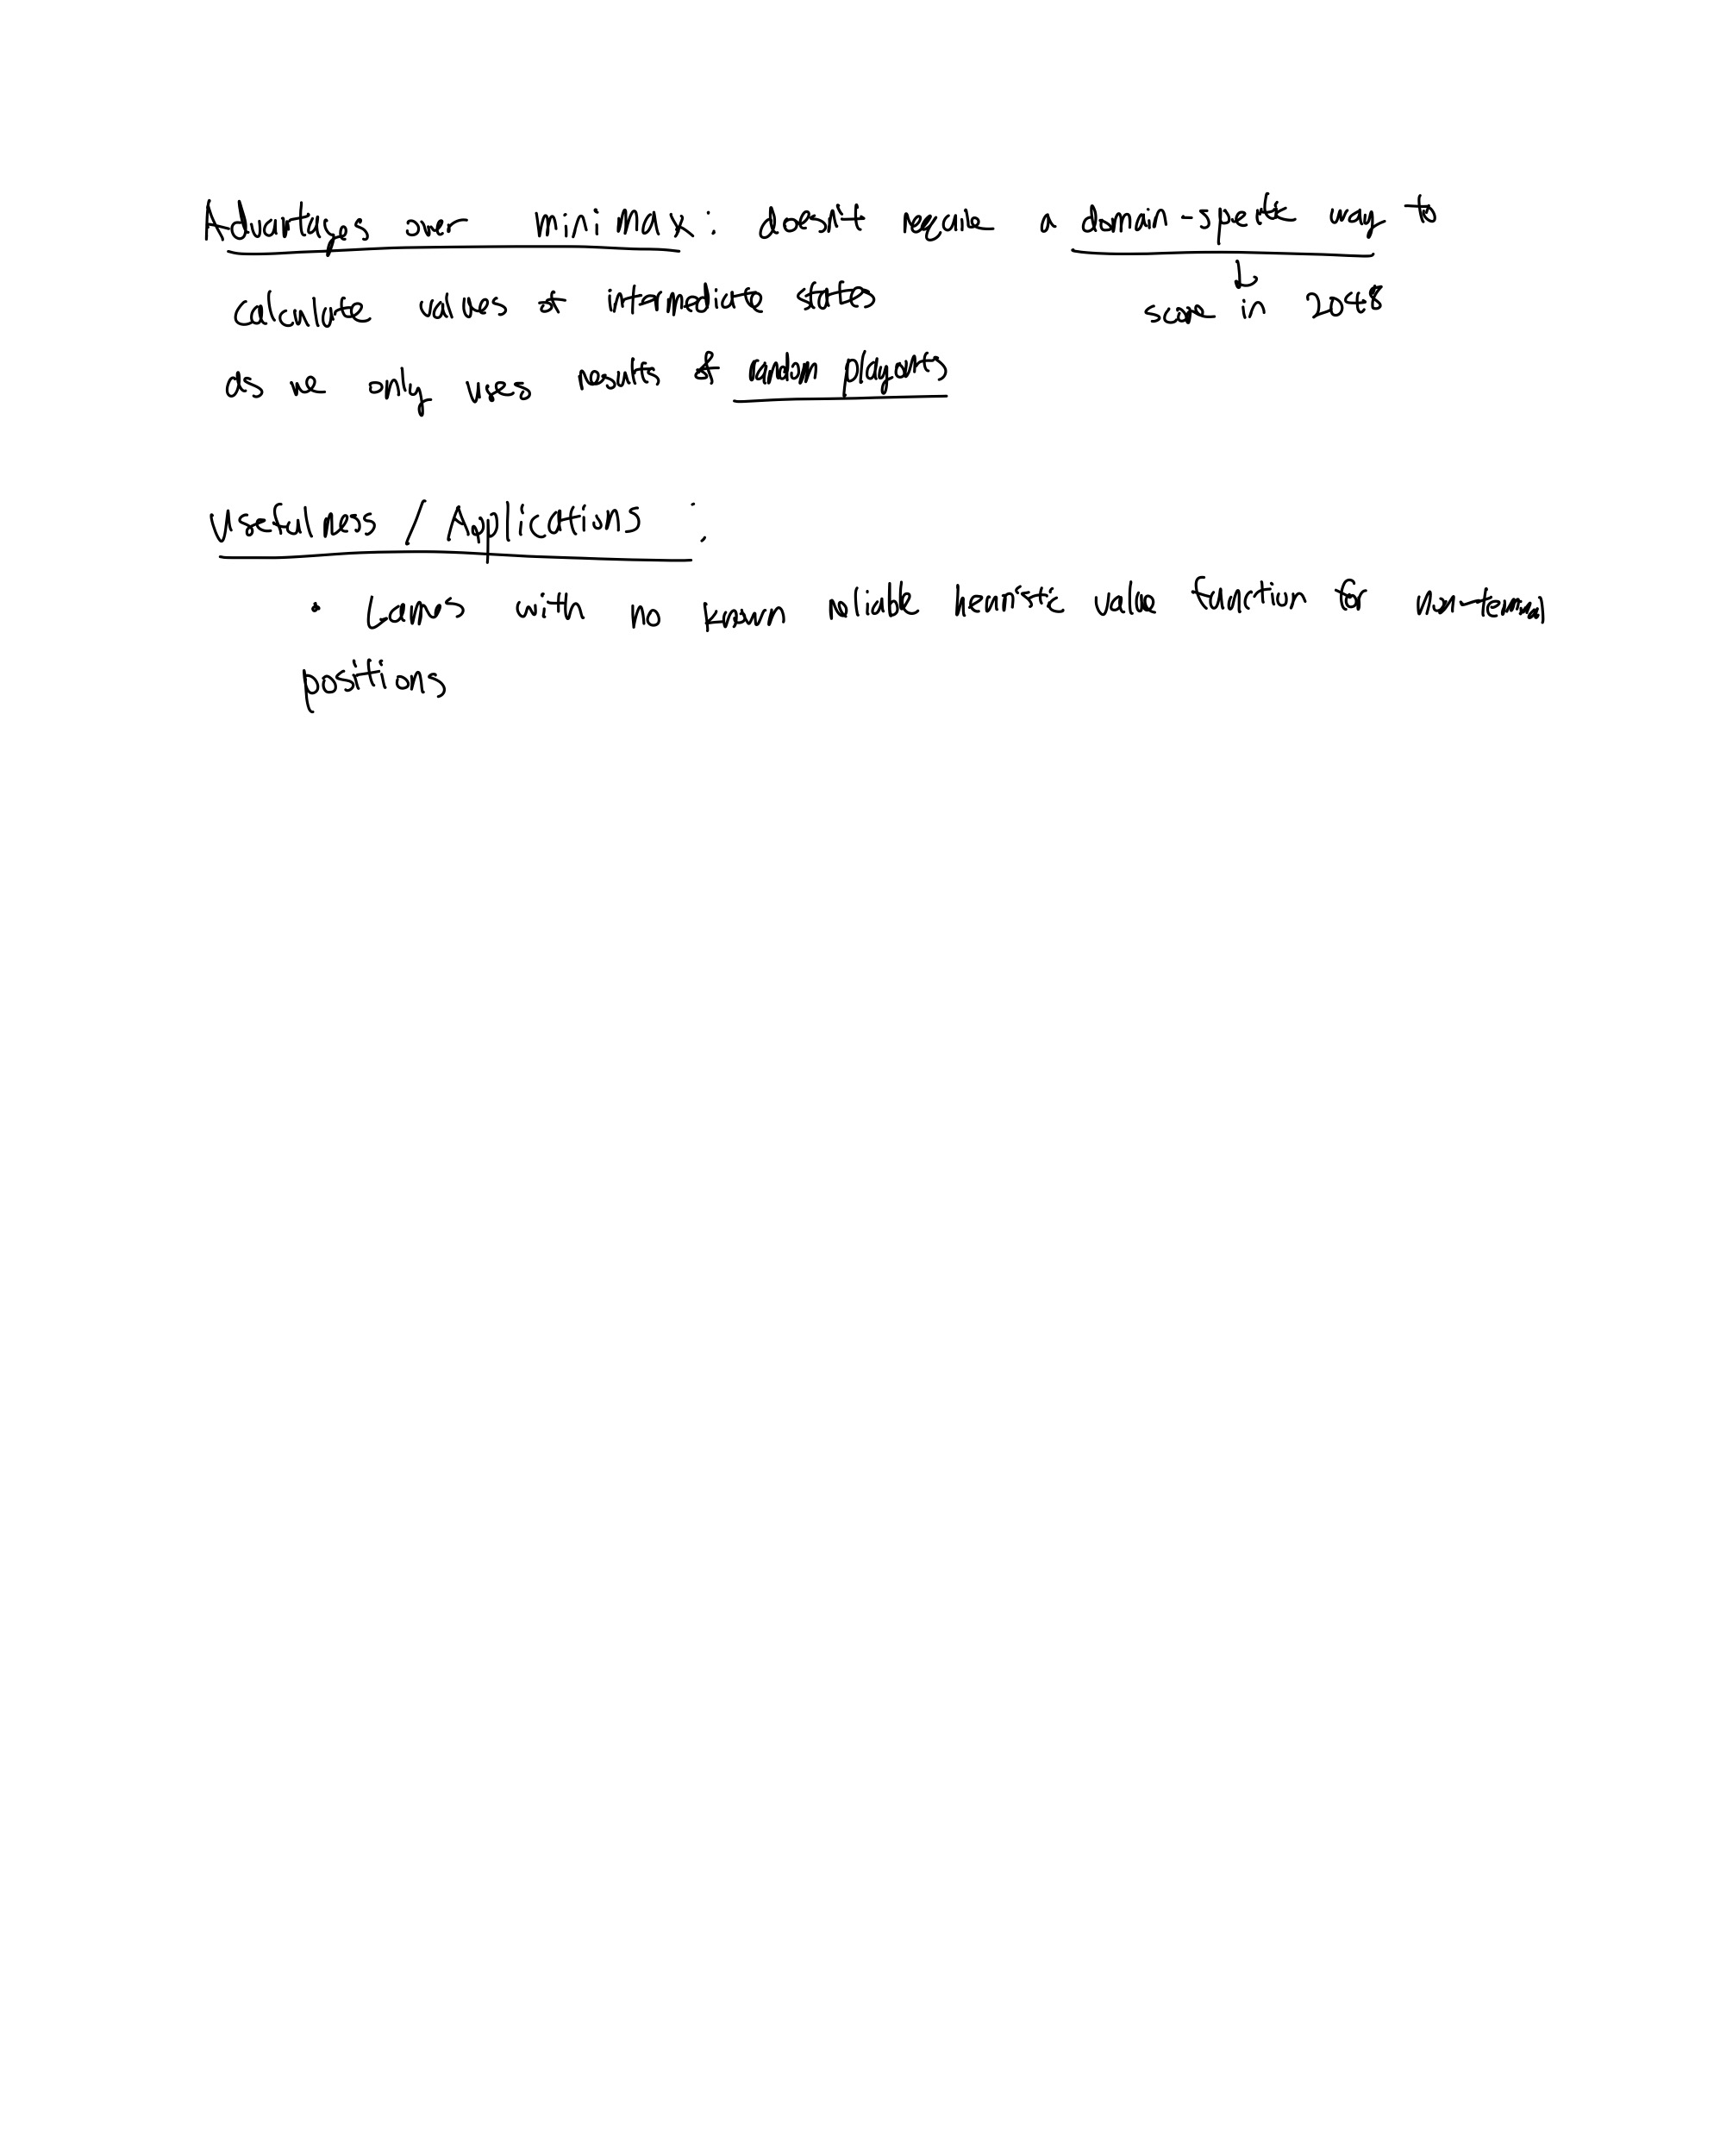 Advantages over minimax: doesn't require a domain-specific way to
calculate values of intermediate states
score in 2048
as we only uses results of random playouts
Usefulness / Applications :
• Games with no known reliable heuristic value function for non-terminal
positions